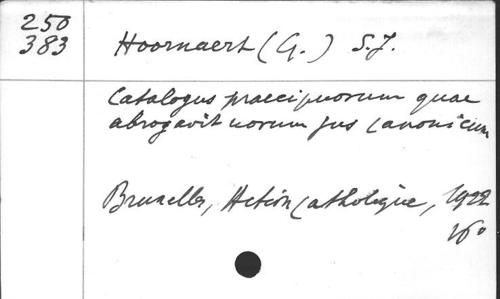 250
383
Hoornaert (G.) S.J.
Catalogus praecipuorum quae
abrogavit novum jus canonicum
Bruxelles, Action Catholique, 1922
16°